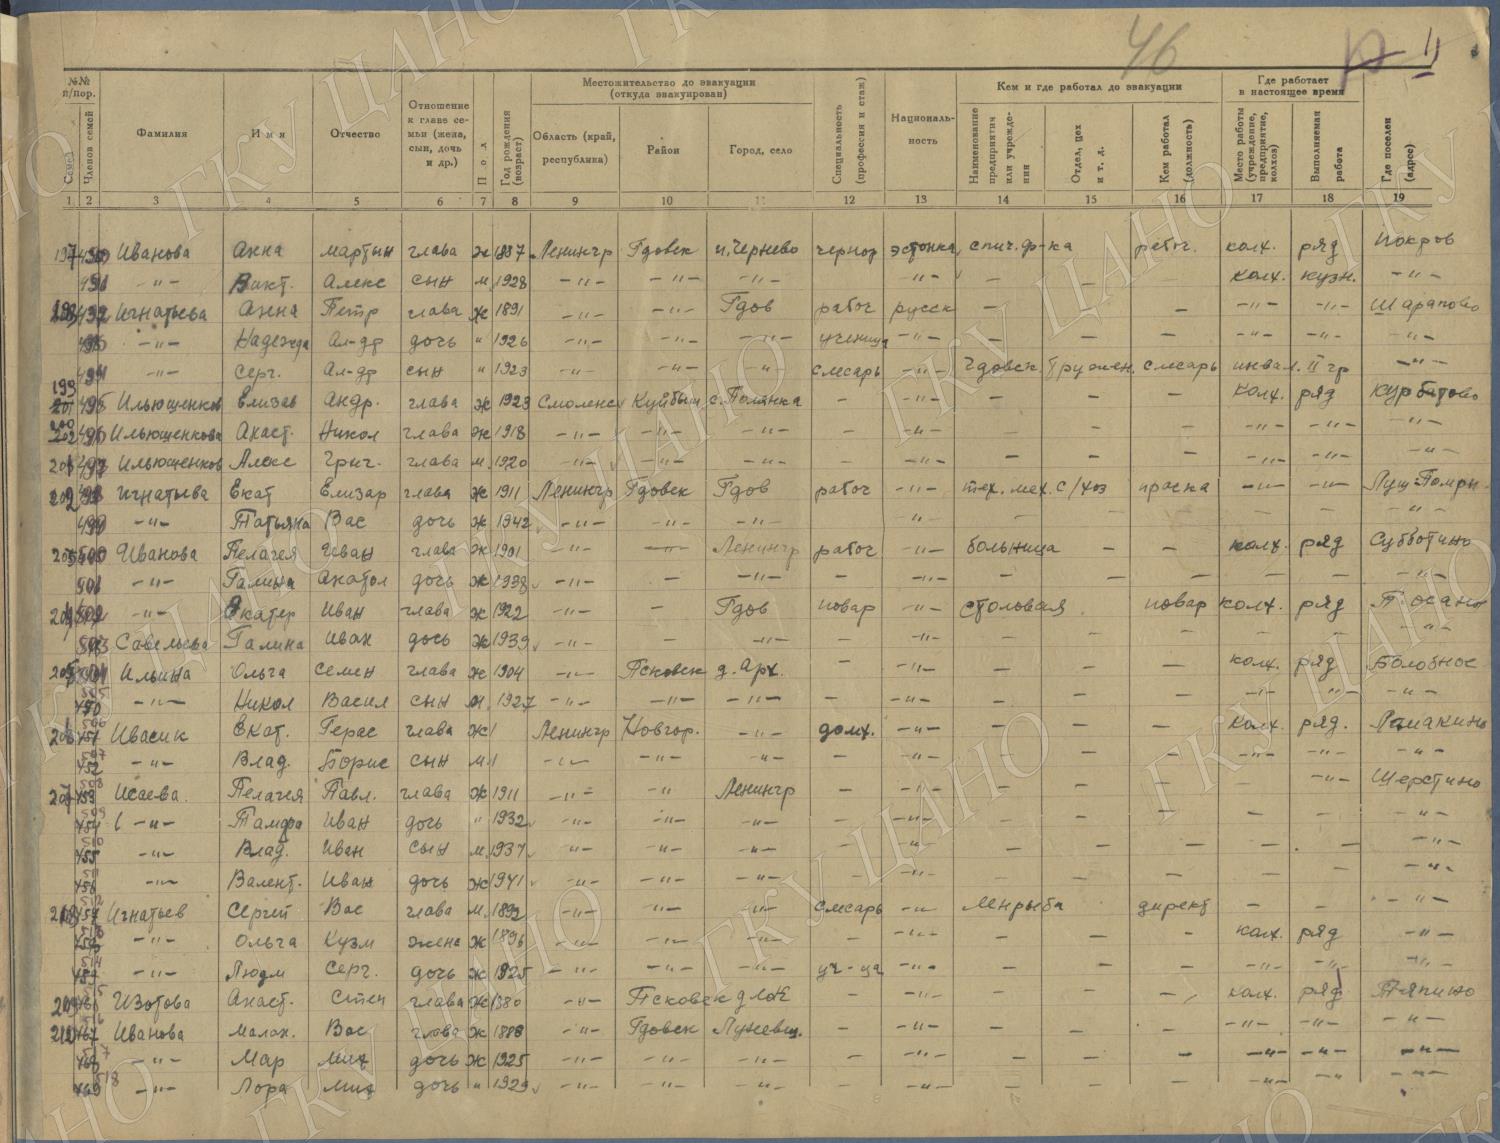 46
11
№№ п/пор.
Семей
Членов семей
Фамилия
Имя
Отчество
Отношение к главе семьи (жена, сын, дочь и др.)
Пол
Год рождения (возраст)
Местожительство до эвакуации (откуда эвакуирован)
Область (край, республика)
Район
Город, село
Специальность (профессия и стаж)
Националь-ность
Кем и где работал до эвакуации
Наименование предприятия или учрежде-ния
Отдел, цех и т. д.
Кем работал (должность)
Где работает в настоящее время
Место работы (учреждение, предприятие, колхоз)
Выполняемая работа
Где поселен (адрес)
1 2 3 4 5 6 7 8 9 10 11 12 13 14 15 16 17 18 19
Иванова Анна Мартын глава ж 1887 Ленингр Гдовск п. Чернево чернор эстонка спич. ф-ка рабоч. колх. ряд Покров
-"- Викт. Алекс сын м 1928 -"- -"- -"- -"- — — колх. кузн. -"-
Игнатьева Анна Петр глава ж 1891 -"- -"- Гдов рабоч русск — — — -"- -"- Шарапово
-"- Надежда Ал-др дочь " 1926 -"- -"- -"- ученица -"- — — — -"- -"- -"-
-"- Серг. Ал-др сын " 1923 -"- -"- -"- слесарь -"- Гдовск слесарь инвал. II гр -"-
Ильюшенков Елизав Андр. глава ж 1923 Смоленс Куйбыш с. Полянка — -"- — — — колх. ряд Курбатово
Ильюшенкова Анаст. Никол глава ж 1918 -"- -"- -"- — -"- — — — -"- -"- -"-
Ильюшенков Алекс Григ. глава м. 1920 -"- -"- -"- — -"- — — — -"- -"- -"-
Игнатьева Екат Елизар глава ж 1911 Ленингр Гдовск Гдов рабоч -"- тех. мех. с/хоз -"- -"-
-"- Татьяна Вас дочь ж 1942 -"- -"- -"- -"- — — — — — -"-
Иванова Пелагея Иван глава ж 1901 -"- -"- Ленингр рабоч -"- больница — — колх. ряд Субботино
501 -"- Галина Анатол дочь ж 1938 -"- — -"- — -"- — — — — — -"-
-"- Екатер Иван глава ж 1922 -"- — Гдов повар -"- столовая повар колх. ряд
Савельева Галина Иван дочь ж 1939 -"- — -"- — -"- — — — — — -"-
Ильина Ольга Семен глава ж 1904 -"- Псковск д. Арх. — -"- — — — колх. ряд
-"- Никол Васил сын м. 1927 -"- -"- -"- — -"- — — — -"- -"- -"-
Ивасик Екат. Герас глава ж Ленингр Новгор. -"- домх. -"- — — — колх. ряд. Ломакино
-"- Влад. Борис сын м. -"- -"- -"- — -"- — — — -"- -"- -"-
Исаева. Пелагея Павл. глава ж 1911 -"- -"- Ленингр — -"- — — — -"- Шерстино
-"- Тамара Иван дочь " 1932 -"- -"- -"- — -"- — — — — — -"-
455 -"- Влад. Иван сын м. 1937 -"- -"- -"- — -"- — — — — — -"-
456 -"- Валент. Иван дочь ж 1941 -"- -"- -"- — -"- — — — — — -"-
Игнатьев Сергей Вас глава м. 1892 -"- -"- -"- слесарь -"- Ленрыба директ — — -"-
-"- Ольга Кузм жена ж 1896 -"- -"- -"- — -"- — — — колх. ряд -"-
-"- Людм Серг. дочь ж 1925 -"- -"- -"- уч-ца -"- — — — -"- -"- -"-
Изотова Анаст. Степ глава ж 1880 -"- Псковск — -"- — — — колх. ряд Тяпино
Иванова Малан. Вас глава ж 1888 -"- Гдовск — -"- — — — -"- -"- -"-
-"- Мар Мих дочь ж 1925 -"- -"- -"- — -"- — — — -"- -"- -"-
-"- Лора Мих дочь " 1929 -"- -"- -"- — -"- — — — -"- -"- -"-
ГКУ ЦАНО